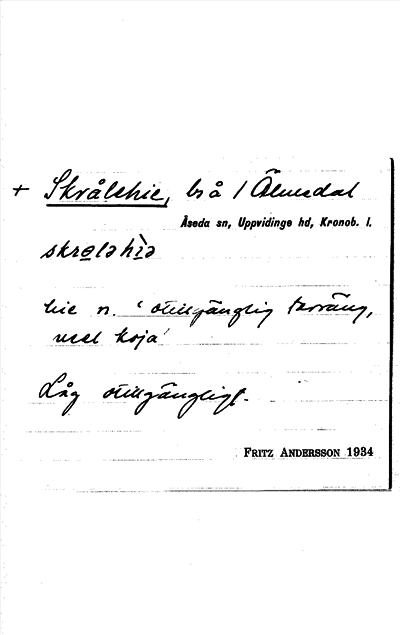 + Skrålehie, bs å / Älmedal
Åseda sn, Uppvidinge hd, Kronob. l.
skrͅolə hìə
hie n. 'otillgänglig terräng,
usel koja'
Låg otillgängligt.
FRITZ ANDERSSON 1934